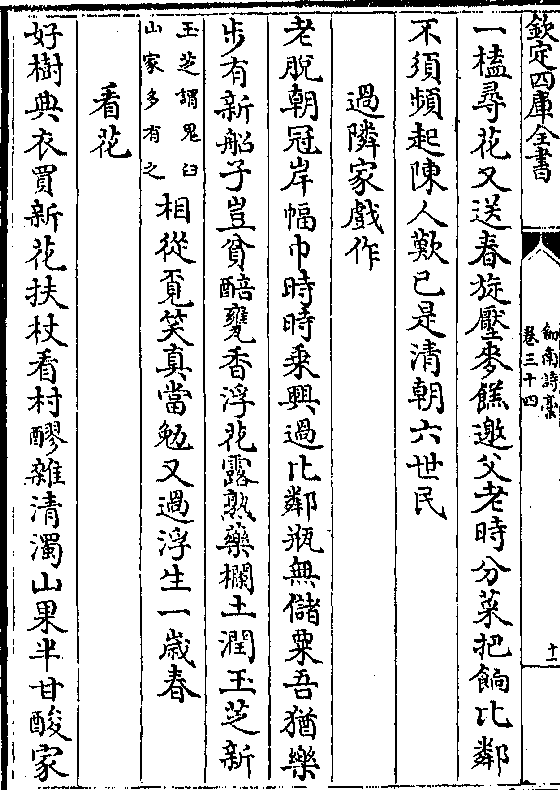 欽定四庫全書
劍南詩稾
卷三十四
十二
一榼尋花又送春旋壓麥餻邀父老時分菜把餉比鄰
不須頻起陳人歎已是清朝六世民
過隣家戲作
老脫朝冠岸幅巾時時乘興過比鄰瓶無儲粟吾猶樂
步有新船子豈貧醅甕香浮花露熟藥欄土潤玉芝新
玉芝謂鬼臼
山家多有之
相從覓笑真當勉又過浮生一歲春
看花
好樹典衣買新花扶杖看村醪雜清濁山果半甘酸家